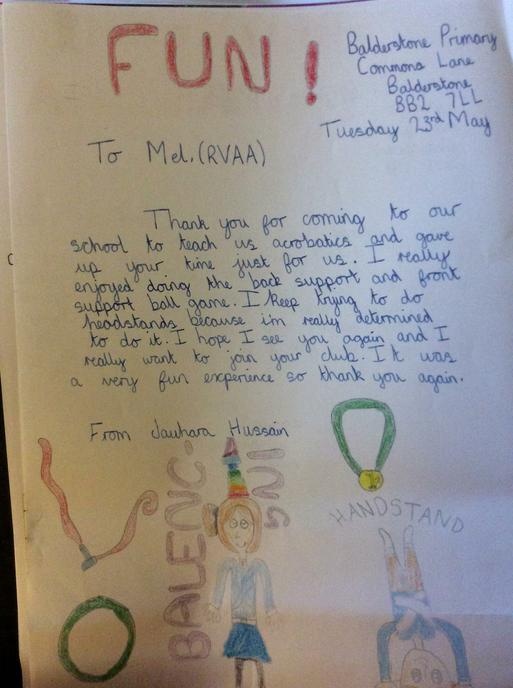 FUN!
Balderstone Primary
Commons Lane
Balderstone
BB2 7LL
Tuesday 23rd May
To Mel.(RVAA)
Thank you for coming to our
school to teach us acrobatics and gave
up your time just for us. I really
enjoyed doing the back support and front
support ball game. I keep trying to do
headstands because i'm really determined
to do it. I hope I see you again and I
really want to join your club. It was
a very fun experience so thank you again.
From Jauhara Hussain
BALENC
ING
HANDSTAND